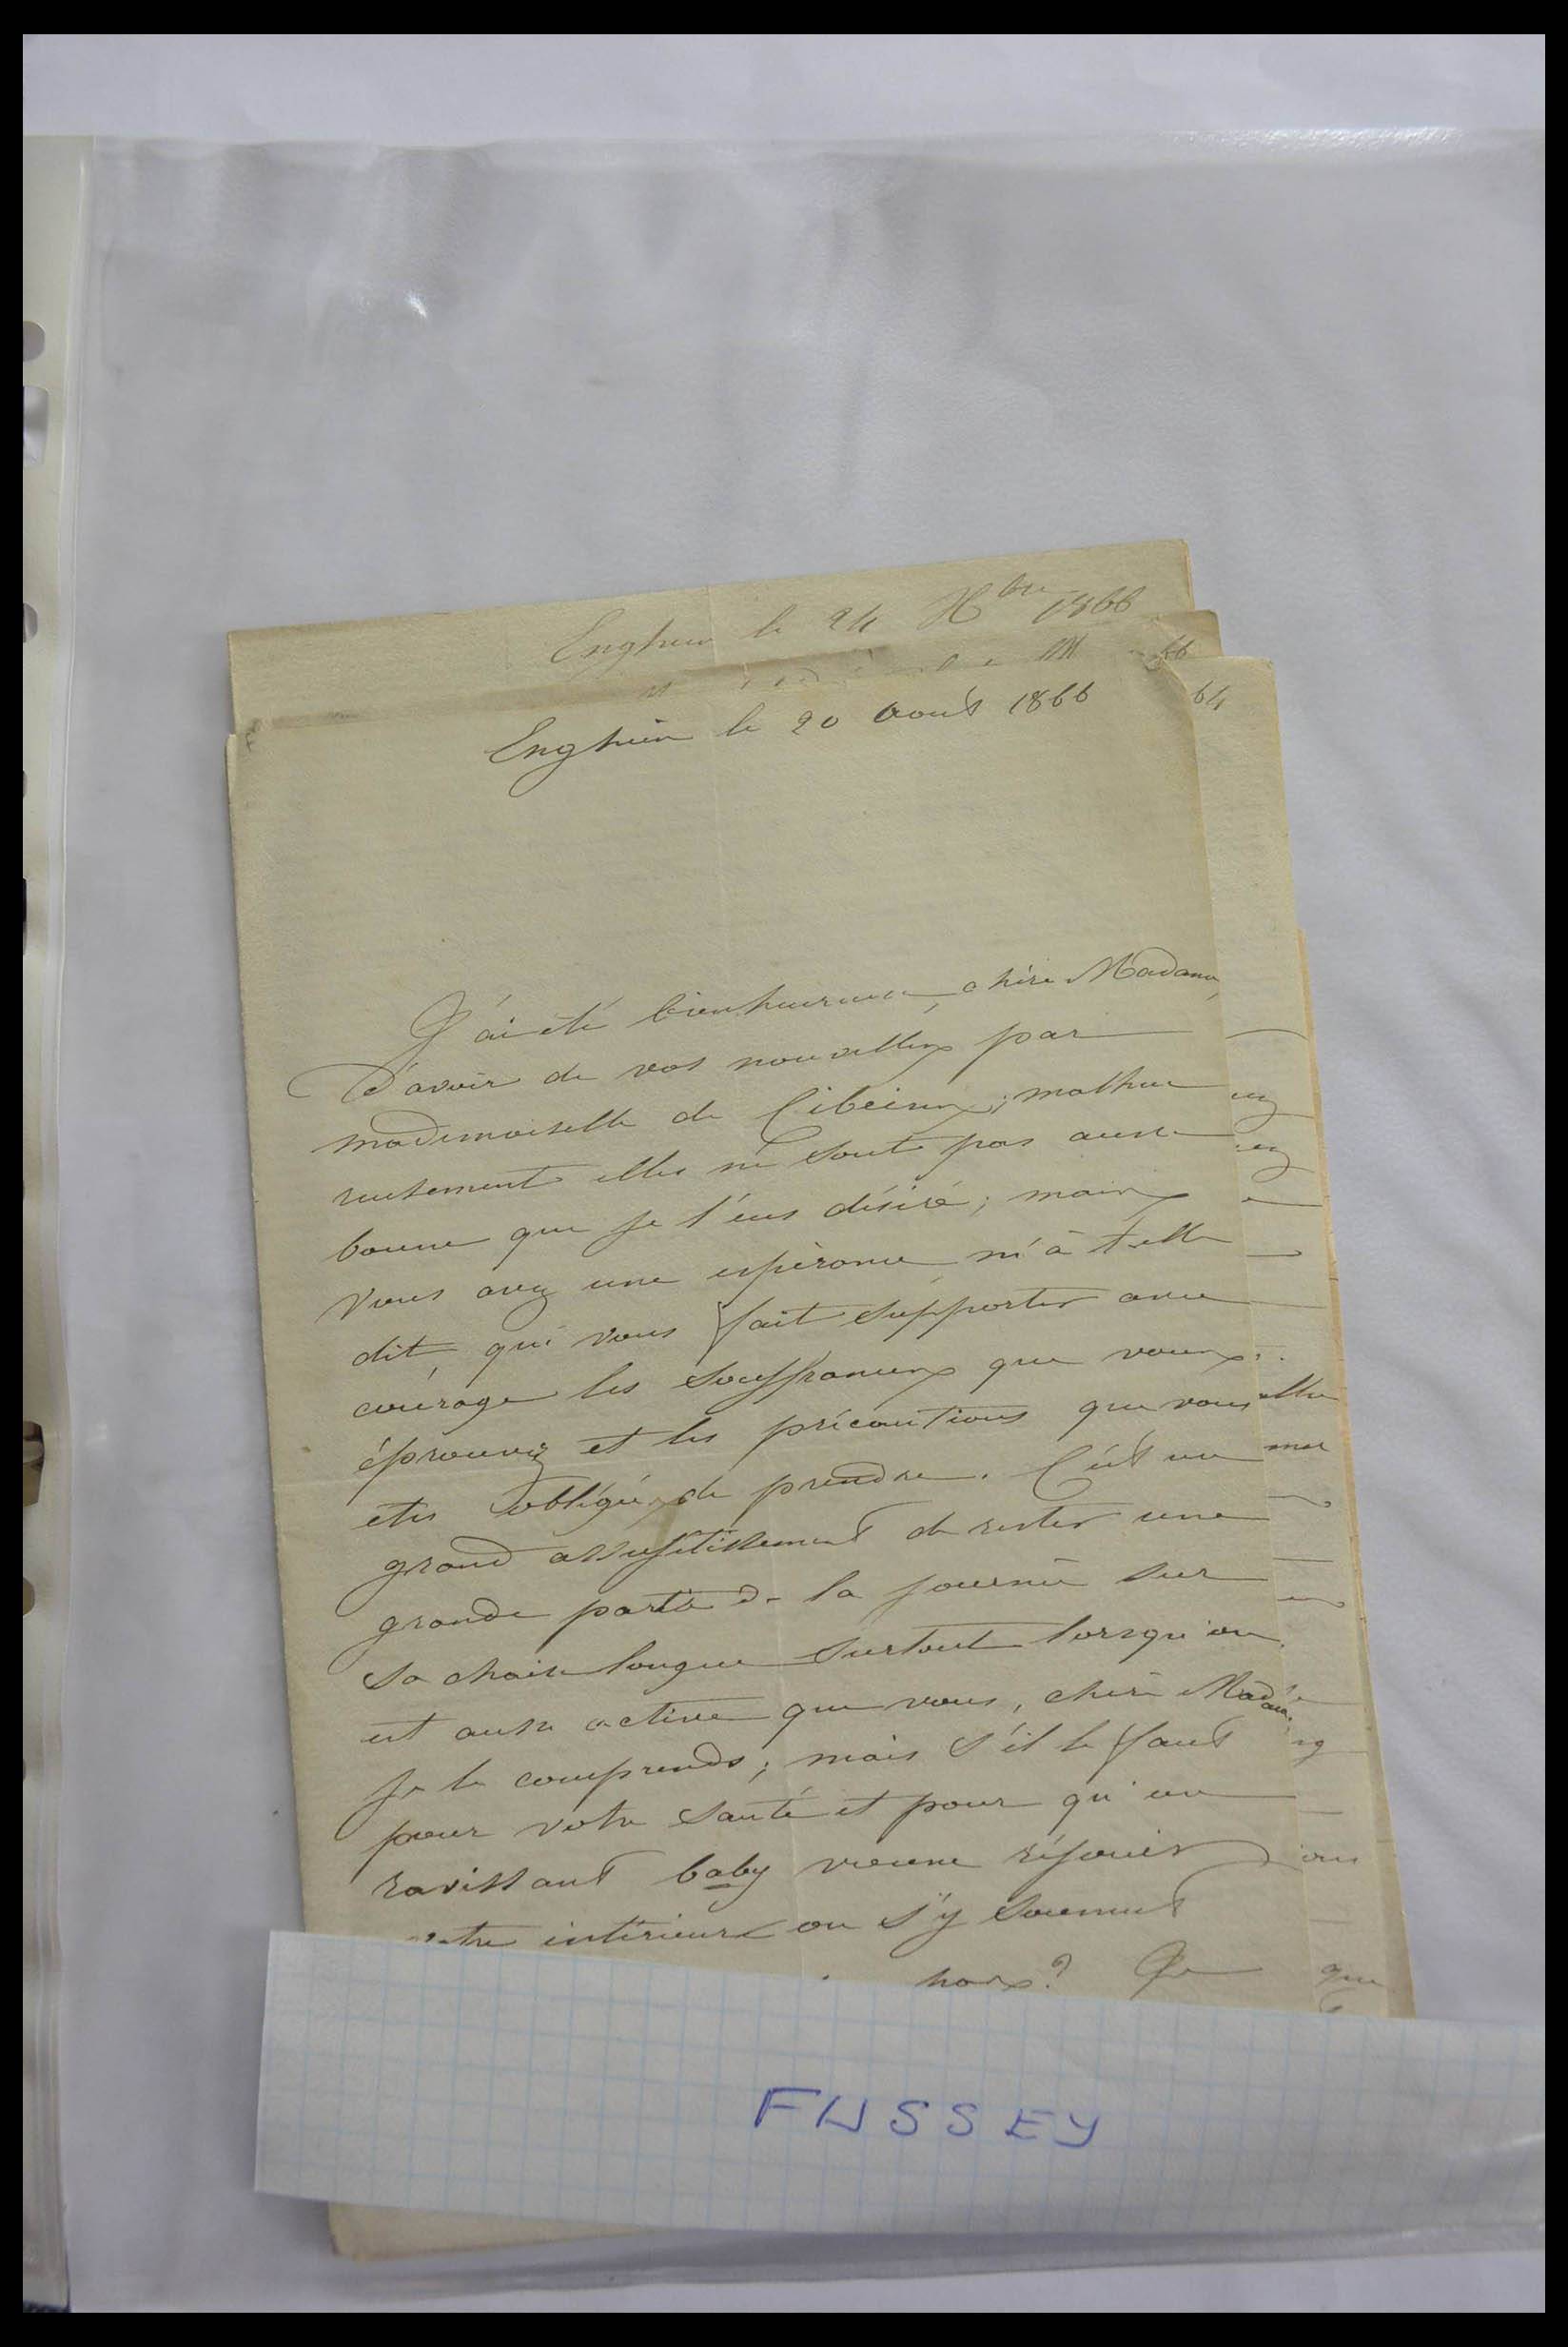 Enghien le 24 Xbre 1866
66
64
Enghien le 20 Aout 1866
J'ai été bien heureuse, chère Madame,
d'avoir de vos nouvelles par
mademoiselle de Cibeins; malheu
reusement elles ne sont pas aussi
bonne que je l'eus désiré; mais
vous avez une espérance m'a t-elle
dit, qui vous fait supporter avec
courage les souffrances que vous
éprouvez et les précautions que vous
etes obligée de prendre. C'est un
grand assujetissement de rester une
grande partie de la journée sur
sa chaise longue surtout lorsqu'on
est aussi active que vous, chère Madame,
je le comprends; mais s'il le faut
pour votre santé et pour qu'un
ravissant baby vienne réjouir
votre intérieur on s'y soumet
pas? Je
que
FUSSEY